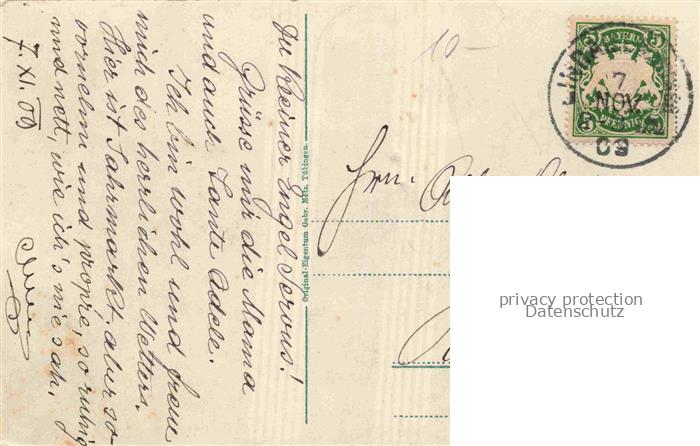 Du kleiner Engel Servus!
Grüsse mir die Mama
und auch Tante Adele.
Ich bin wohl und freue
mich des herrlichen Wetters.
Hier ist Jahrmarkt, aber so
vornehm und propre, so ruhig
und nett, wie ich's nie sah.
7. XI. 09
Original-Eigentum Gebr. Metz, Tübingen.
10-
BAYERN
5 5
PFENNIG
7
NOV
09
Hrn.
privacy protection
Datenschutz